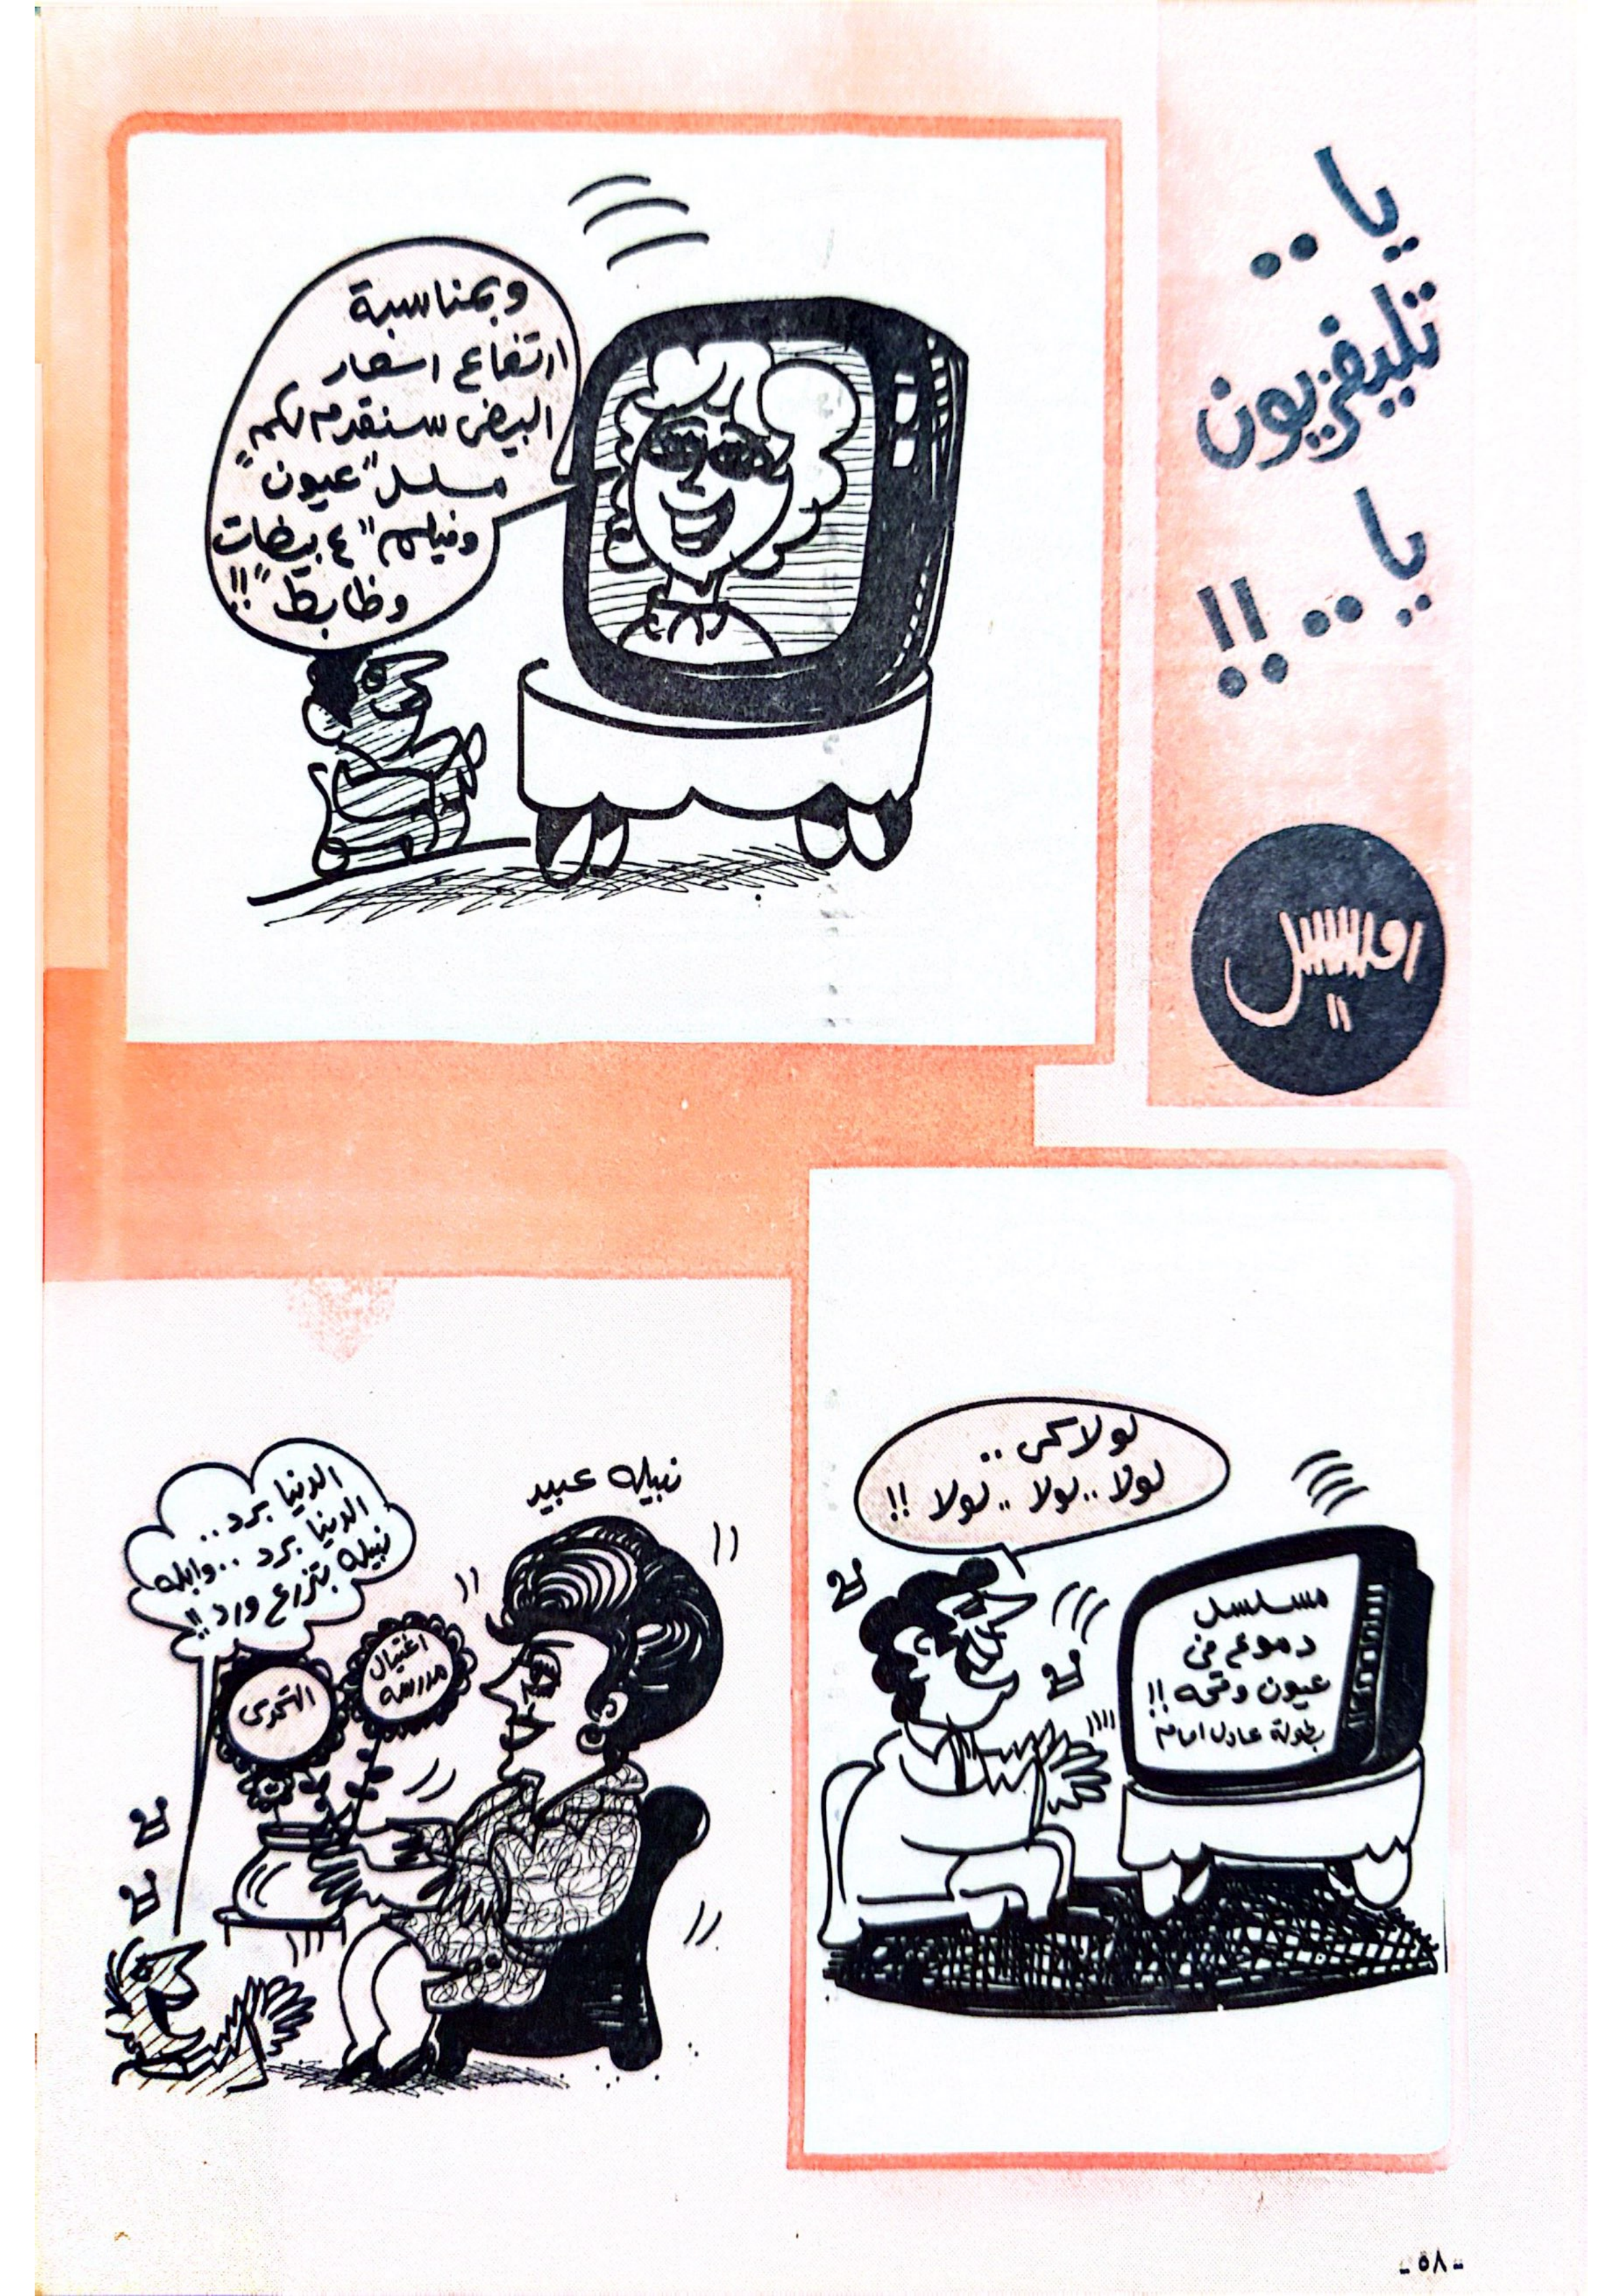 يا..
تليفزيون
يا..!!
وبمناسبة
ارتفاع اسعار
البيض سنقدم لكم
مسلسل "عيون"
وفيلم "٤ بيضات
وظابط"!!
لولاكي..
لولا..لولا..لولا!!
مسلسل
دموع في
عيون وقحه!!
بطولة عادل امام
نبيله عبيد
الدنيا برد..
الدنيا برد..وابله
نبيله بتزرع ورد!!
اغتيال
مدرسه
التحدى
- ٥٨ -